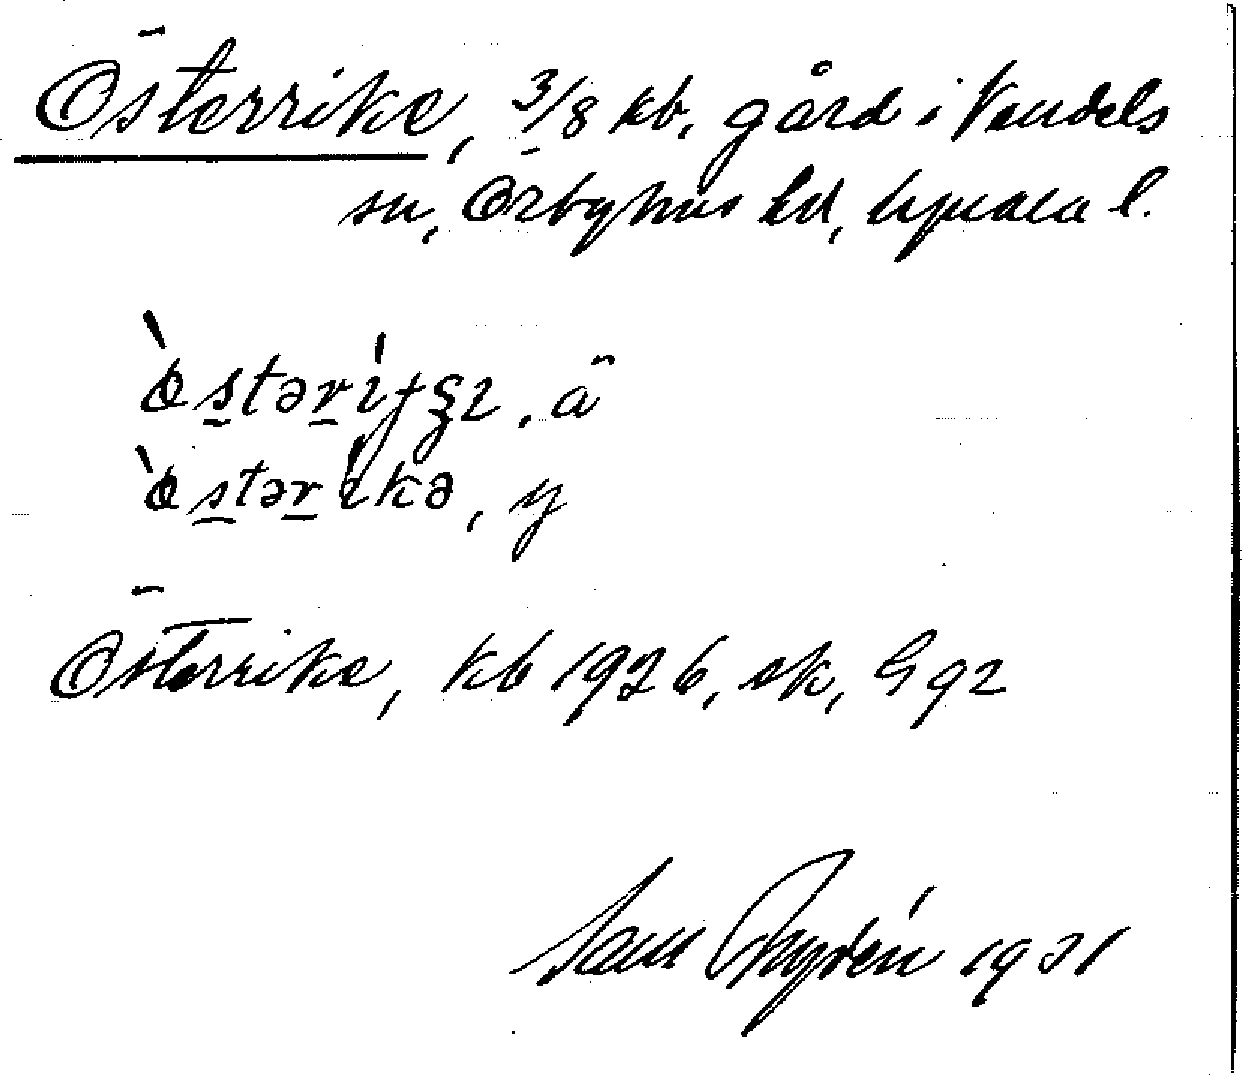 Österrike, 3/8 kb, gård i Vendels
sn, Örbyhus hd, Upsala l.
östəri, ä
östərikə, y
Österrike, kb 1926, ek, G 92
Sam Rydén 1931